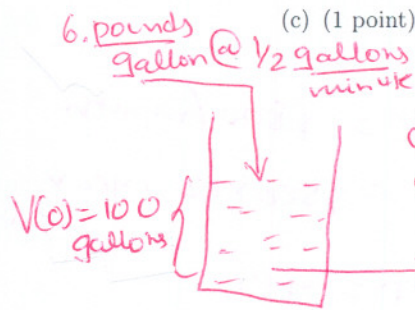 (c) (1 point)
6. pounds
gallon @ 1/2 gallons
minute
V(0) = 100
gallons